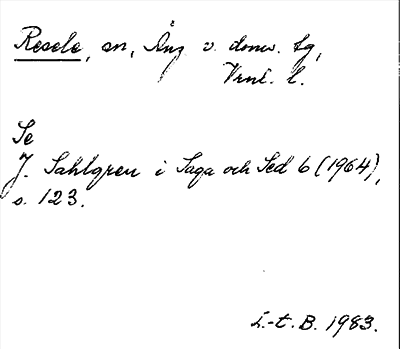 Resele, sn, Ång. v. doms. tg,
Vrnl. l.
Se
J. Sahlgren i Saga och Sed 6 (1964),
s. 123.
L.-t. B. 1983.